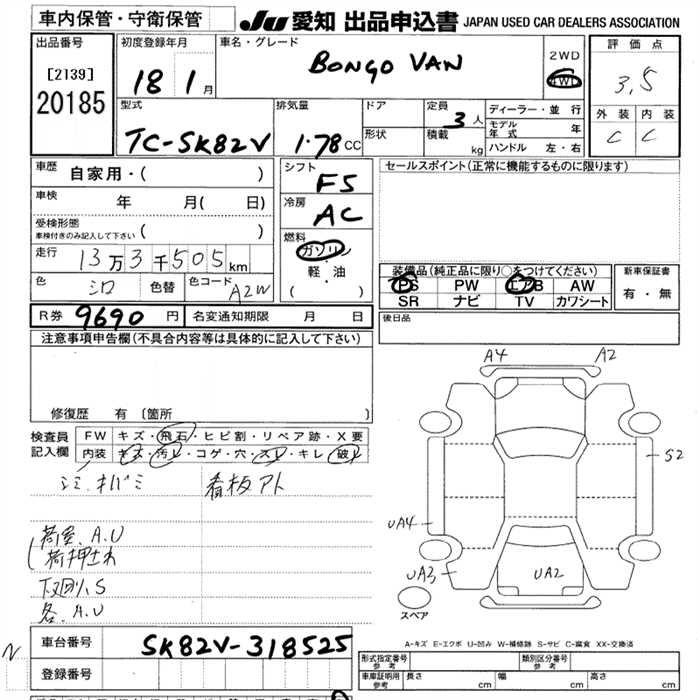 車内保管・守衛保管 JU 愛知 出品申込書 JAPAN USED CAR DEALERS ASSOCIATION
出品番号 初度登録年月 車名・グレード 評価点
[2139] 18 1月 BONGO VAN 2WD 4WD 3,5
20185
型式 排気量 ドア 定員 3人 ディーラー・並行 外装 内装
TC-SK82V 1.78CC 形状 積載 kg モデル年式 年 C C
ハンドル 左・右
車歴 自家用・( ) シフト F5 セールスポイント(正常に機能するものに限ります)
車検 年 月( 日) 冷房 AC
受検形態 車検付きのみ記入して下さい ( )
燃料 ガソリン
走行 13万3千505km 軽・油
( )
装備品(純正品に限り○をつけてください) 新車保証書
色 シロ 色替 色コード A2W PS PW エアB AW 有・無
SR ナビ TV カワシート
R券 9690円 名変通知期限 月 日 後日品
注意事項申告欄(不具合内容等は具体的に記入して下さい)
A4 A2
修復歴 有 〔箇所 〕
検査員記入欄 FW キズ・飛石・ヒビ割・リペア跡・X要
内装 キズ・汚レ・コゲ・穴・スレ・キレ・破レ
S2
シミ、オバミ 看板アト
UA4
荷室、A.U
荷押サれ
UA3 UA2
下回り、S
各、A.U
スペア
A-キズ E-エクボ U-凹み W-補修跡 S-サビ C-腐食 XX-交換済
N 車台番号 SK82V-318525
型式指定番号 参考 類別区分番号 参考
登録番号 車庫証明用 参考 長さ cm 幅 cm 高さ cm